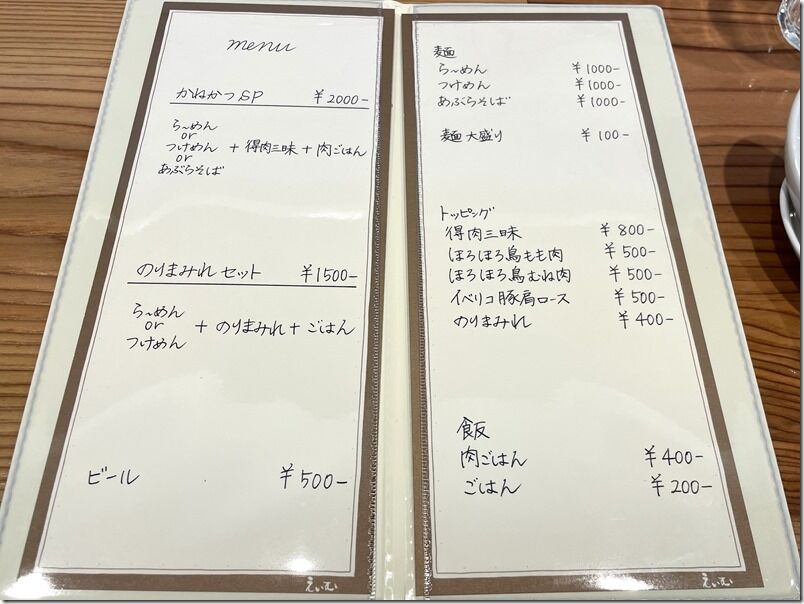 menu
かねかつSP ￥2000-
ら〜めん
or
つけめん + 得肉三昧 + 肉ごはん
or
あぶらそば
のりまみれセット ￥1500-
ら〜めん
or + のりまみれ + ごはん
つけめん
ビール ￥500-
えいむ
麺
ら〜めん ￥1000-
つけめん ￥1000-
あぶらそば ￥1000-
麺大盛り ￥100-
トッピング
得肉三昧 ￥800-
ほろほろ鳥もも肉 ￥500-
ほろほろ鳥むね肉 ￥500-
イベリコ豚肩ロース ￥500-
のりまみれ ￥400-
飯
肉ごはん ￥400-
ごはん ￥200-
えいむ